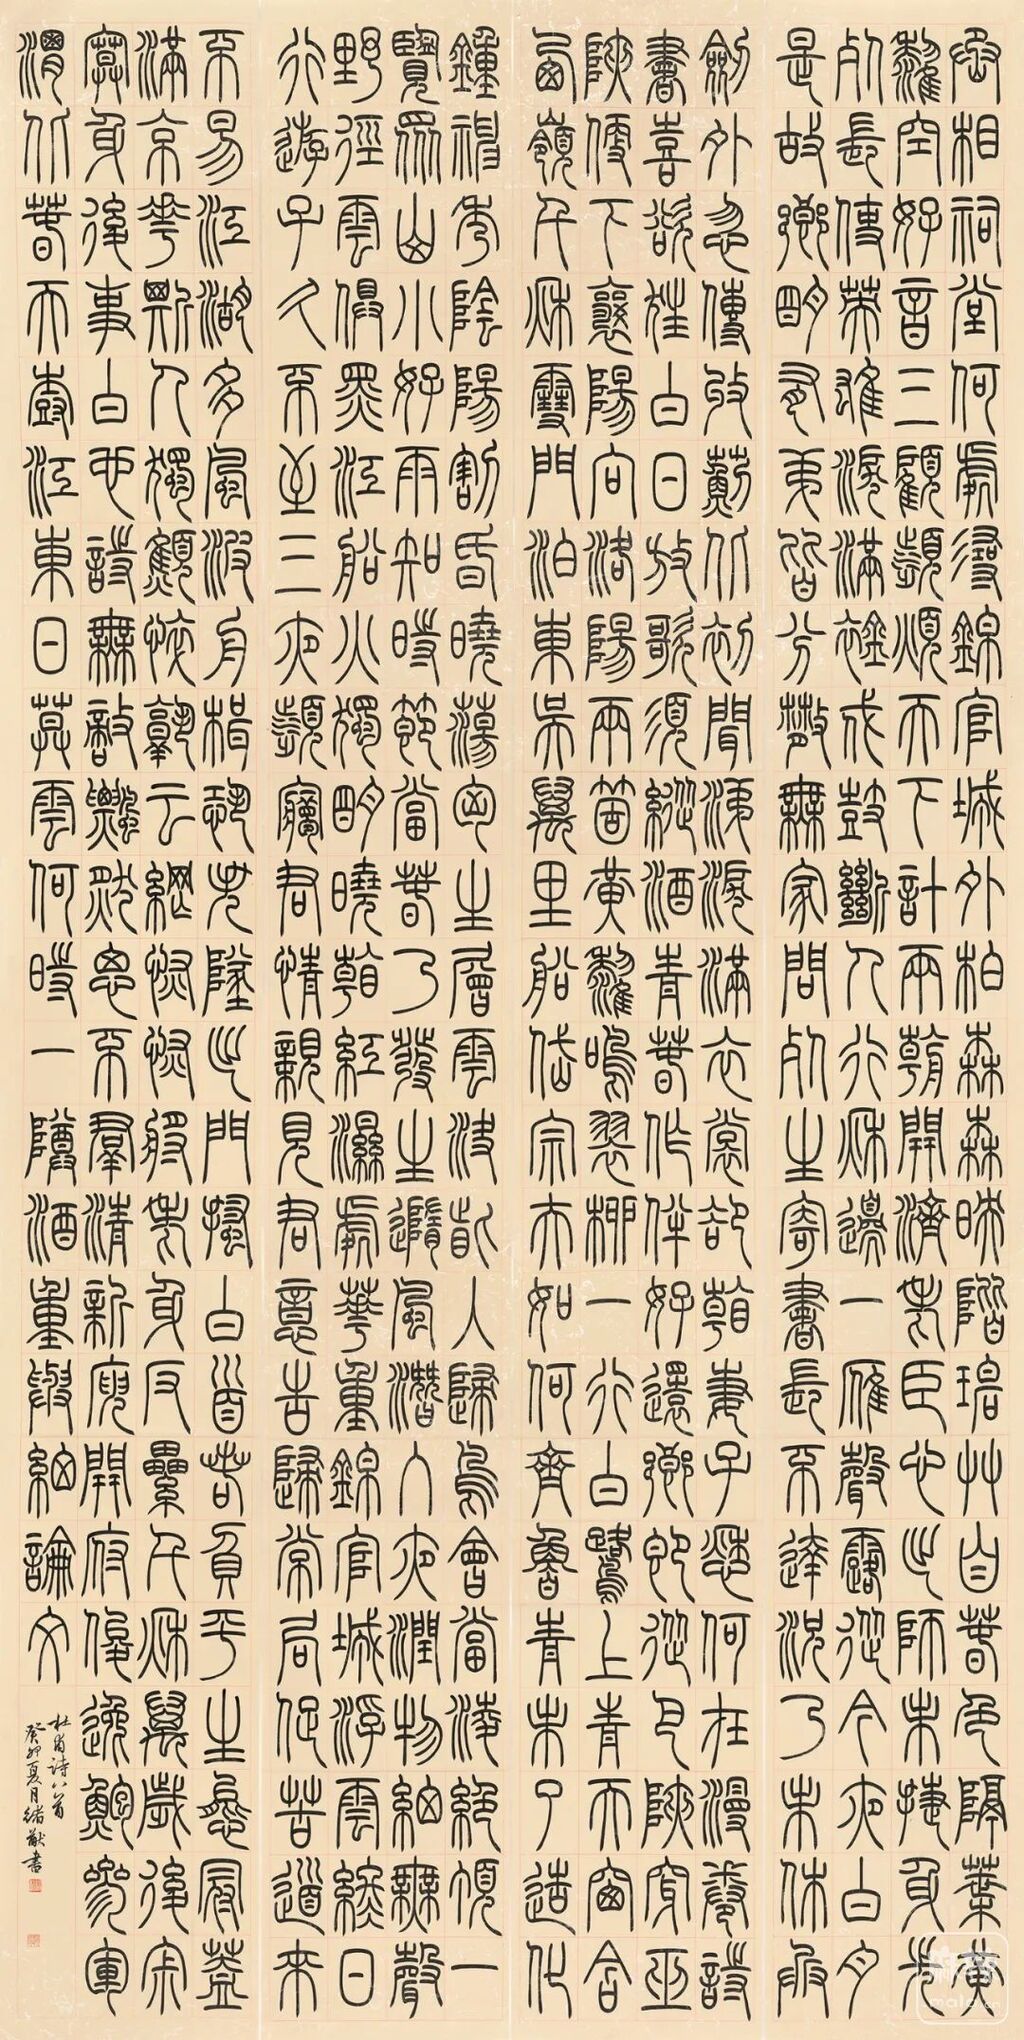 丞相祠堂何處尋錦官城外柏森森映階碧草自春色隔葉黃
鸝空好音三顧頻煩天下計兩朝開濟老臣心出師未捷身先
死長使英雄淚滿襟戍鼓斷人行秋邊一雁聲露從今夜白月
是故鄉明有弟皆分散無家問死生寄書長不達況乃未休兵
劍外忽傳收薊北初聞涕淚滿衣裳卻看妻子愁何在漫卷詩
書喜欲狂白日放歌須縱酒青春作伴好還鄉即從巴峽穿巫
峽便下襄陽向洛陽兩箇黃鸝鳴翠柳一行白鷺上青天窗含
西嶺千秋雪門泊東吳萬里船岱宗夫如何齊魯青未了造化
鍾神秀陰陽割昏曉蕩胸生層雲決眥入歸鳥會當凌絕頂一
覽眾山小好雨知時節當春乃發生隨風潛入夜潤物細無聲
野徑雲俱黑江船火獨明曉看紅濕處華重錦官城浮雲終日
行遊子久不至三夜頻夢君情親見君意告歸常局促苦道來
不易江湖多風波舟楫恐失墜出門搔白首若負平生志冠蓋
滿京華斯人獨顦悴孰云網恢恢將老身反累千秋萬歲後寂
寞身後事白也詩無敵飄然思不群清新庾開府俊逸鮑參軍
渭北春天樹江東日暮雲何時一罇酒重與細論文
杜甫詩八首
癸卯夏月緒猷書